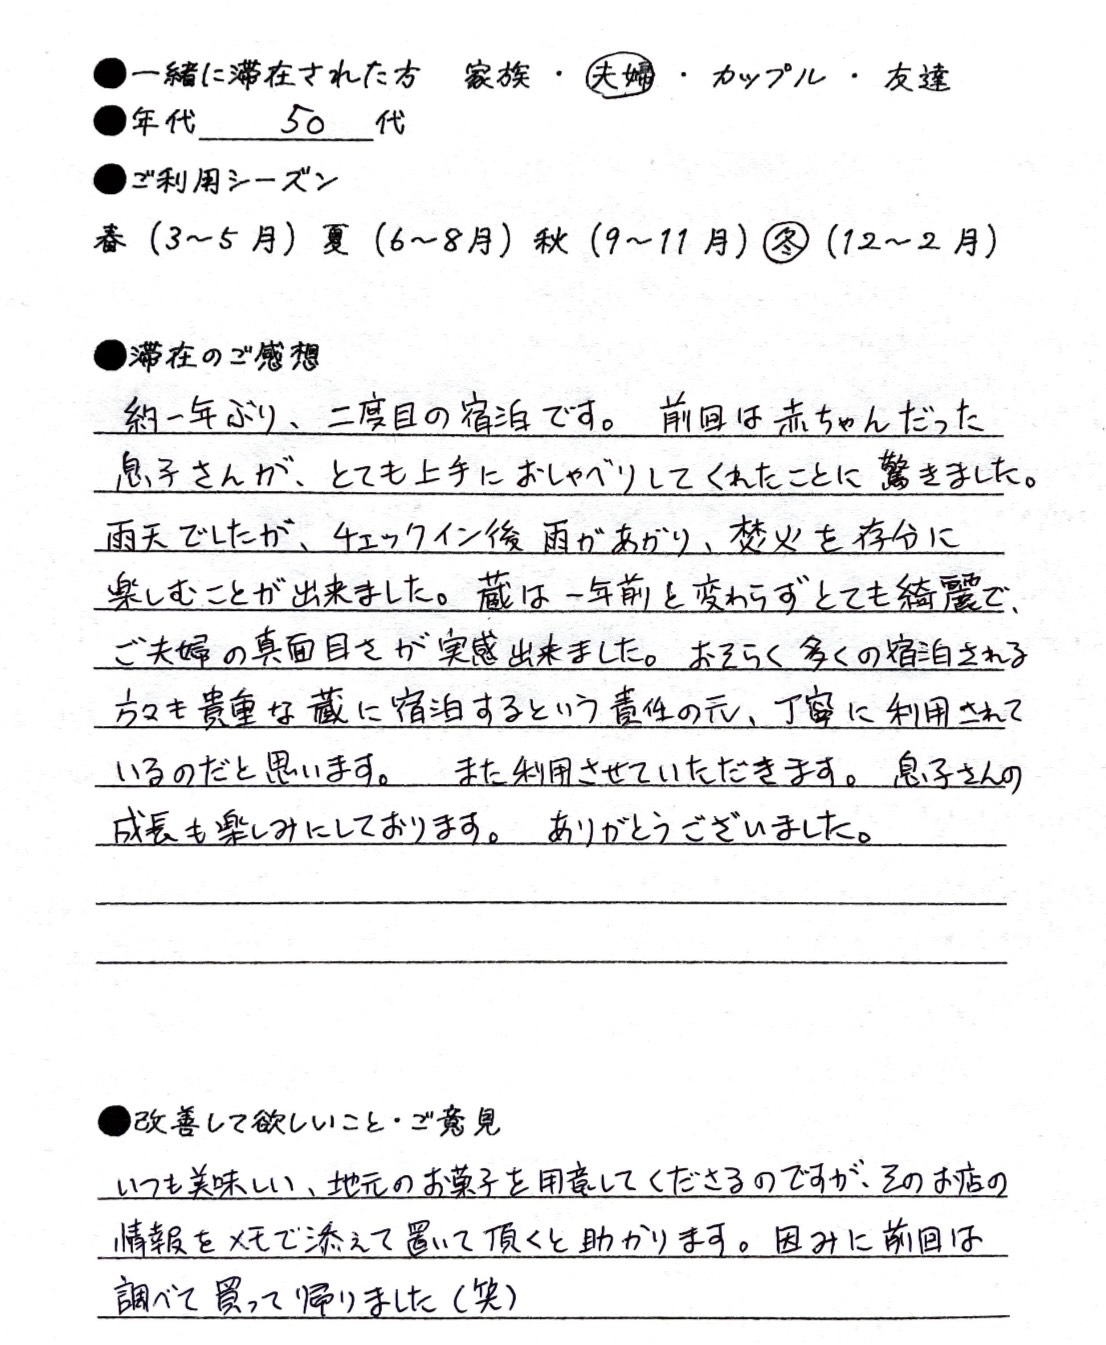 ●一緒に滞在された方 家族・夫婦・カップル・友達
●年代 50 代
●ご利用シーズン
春（3～5月）夏（6～8月）秋（9～11月）冬（12～2月）
●滞在のご感想
約一年ぶり、二度目の宿泊です。 前回は赤ちゃんだった
息子さんが、とても上手におしゃべりしてくれたことに驚きました。
雨天でしたが、チェックイン後雨があがり、焚火を存分に
楽しむことが出来ました。蔵は一年前と変わらずとても綺麗で、
ご夫婦の真面目さが実感出来ました。おそらく多くの宿泊される
方々も貴重な蔵に宿泊するという責任の元、丁寧に利用されて
いるのだと思います。 また利用させていただきます。 息子さんの
成長も楽しみにしております。 ありがとうございました。
●改善して欲しいこと・ご意見
いつも美味しい、地元のお菓子を用意してくださるのですが、そのお店の
情報をメモで添えて置いて頂くと助かります。因みに前回は
調べて買って帰りました（笑）